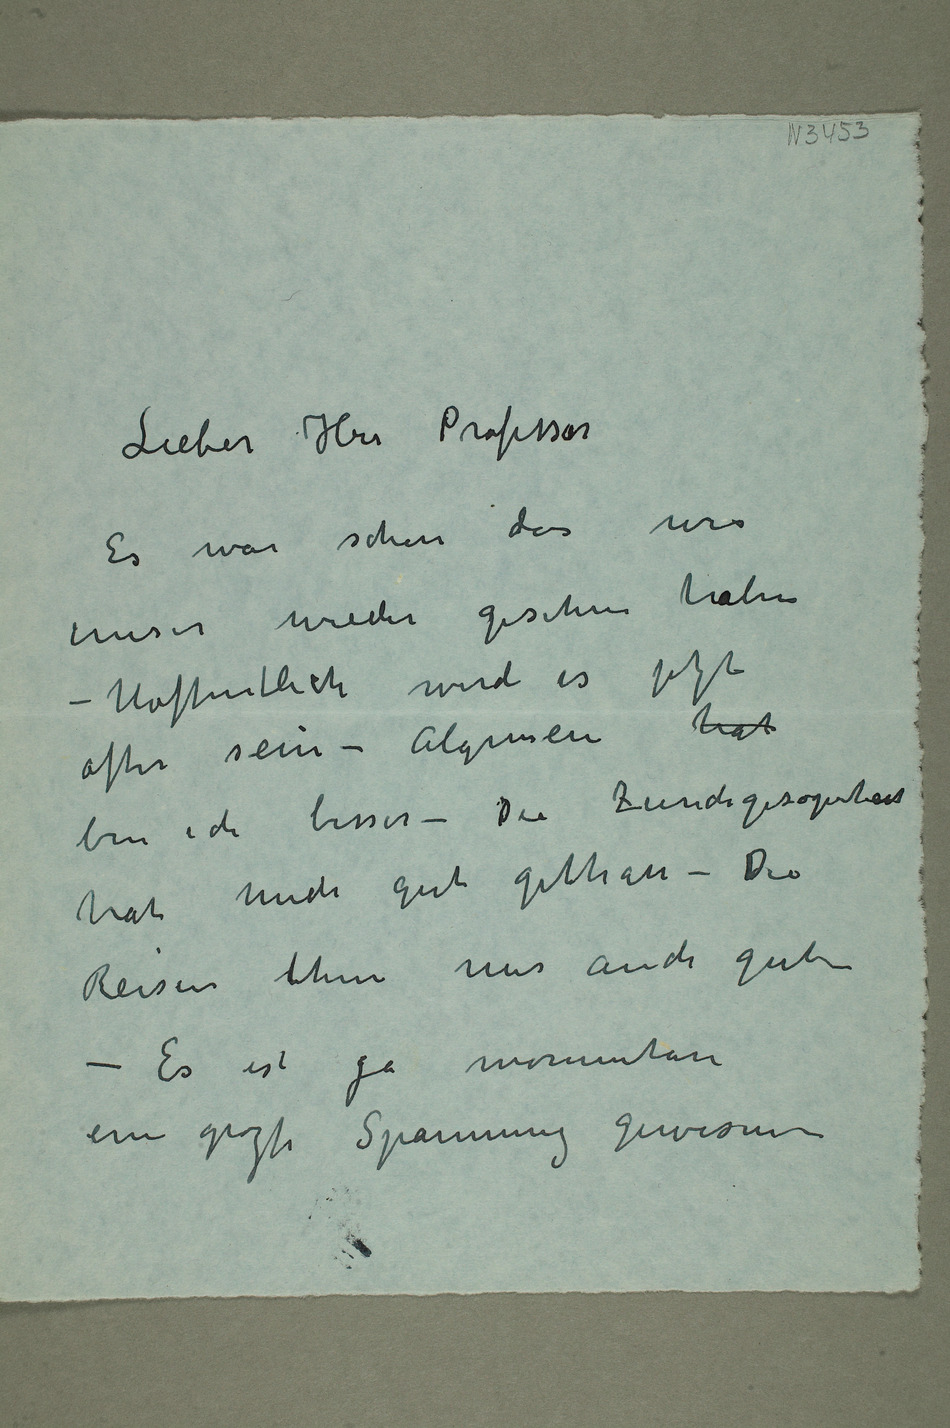 N3453
Lieber Herr Professor
Es war schen das wir
unser wieder gesehen haben
– Hoffentlich wird es jetzt
ofter sein – Algemsen hat
bin ich besser – Die
hat mich gut gethan – Die
Reisen thun mir auch gut –
– Es ist ja momentan
ein große Spannung gewesen –